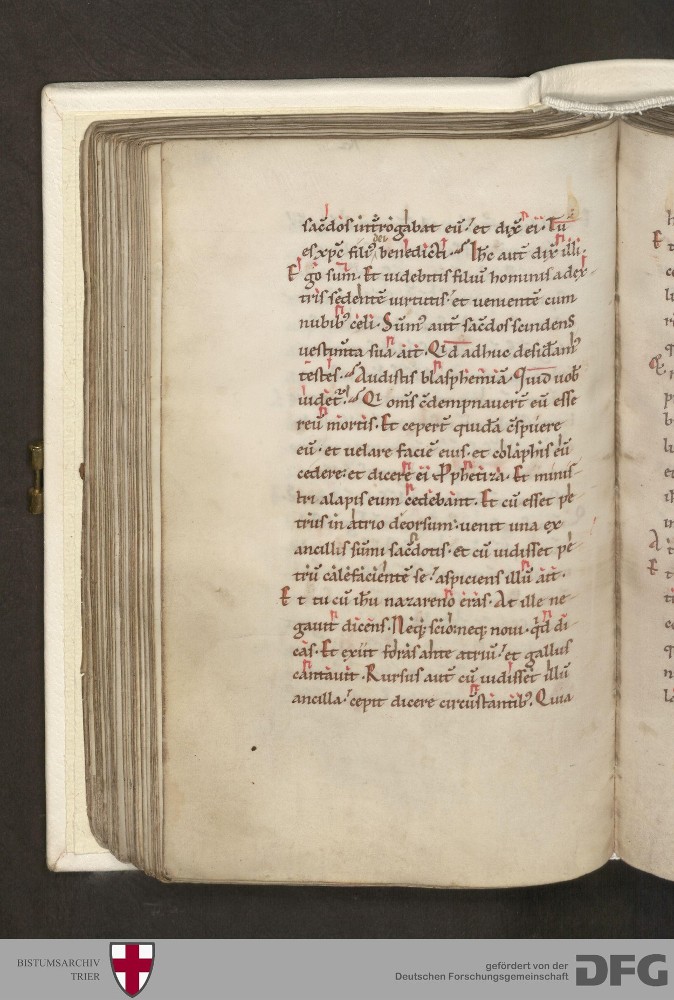 sac̄dos int̄rogabat eū. et dix̄ ei. Tu
es xp̄c filꝰ dei benedicti. Ih̄c aut̄ dix̄ illi.
Ego sum. Et videbitis filiū hominis a dex
tris sedentē virtutis. et venientē cum
nubibꝰ celi. Sum̄ꝰ aut̄ sac̄dos scindens
vestim̄ta sua ait. Qid adhuc desid̄amꝰ
testes. Audistis blasphemiā. Quid vob̄
videt̄. Qi om̄s c̄dempnavert̄ eū esse
reū mortis. Et cepert̄ quidā c̄spuere
eū. et velare faciē eius. et colaphis eū
cedere. et dicere ei Prophetiza. Et minis
tri alapis eum cedebant. Et cū esset pe
trus in atrio deorsum. venit una ex
ancillis sūmi sac̄dotis. et cū vidisset pe
trū calefacientē se. aspiciens illū ait.
Et tu cū ih̄u nazareno eras. At ille ne
gavit dicens. Neq; scio. neq; novi. qd̄ di
cas. Et exiit foras ante atriū. et gallus
cantavit. Rursus aut̄ cū vidisset illū
ancilla. cepit dicere circūstantibꝰ. Quia
BISTUMSARCHIV
TRIER
gefördert von der
Deutschen Forschungsgemeinschaft
DFG